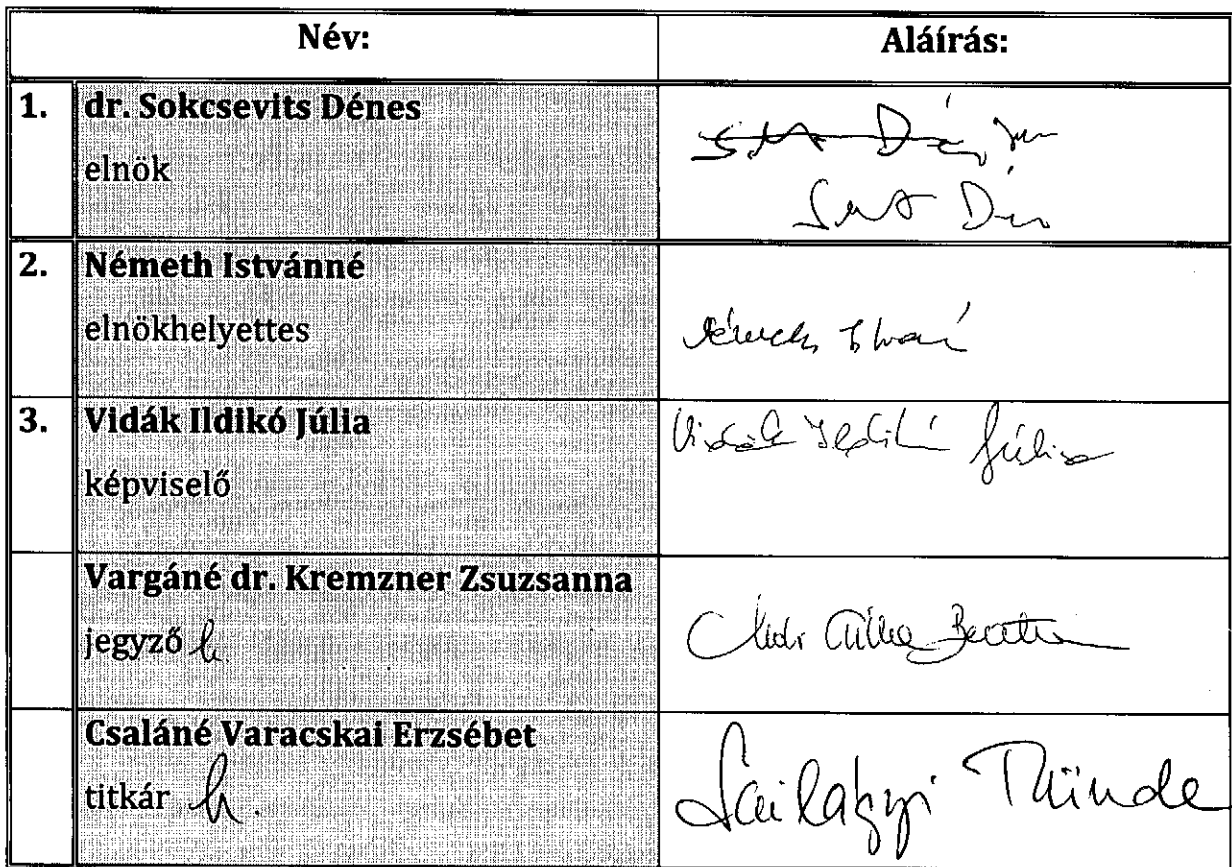 Név: Aláírás:
1. dr. Sokcsevits Dénes
elnök
2. Németh Istvánné
elnökhelyettes
3. Vidák Ildikó Júlia
képviselő
Vidák Ildikó Júlia
Vargáné dr. Kremzner Zsuzsanna
jegyző h.
Csaláné Varacskai Erzsébet
titkár h.
Szilágyi Tünde